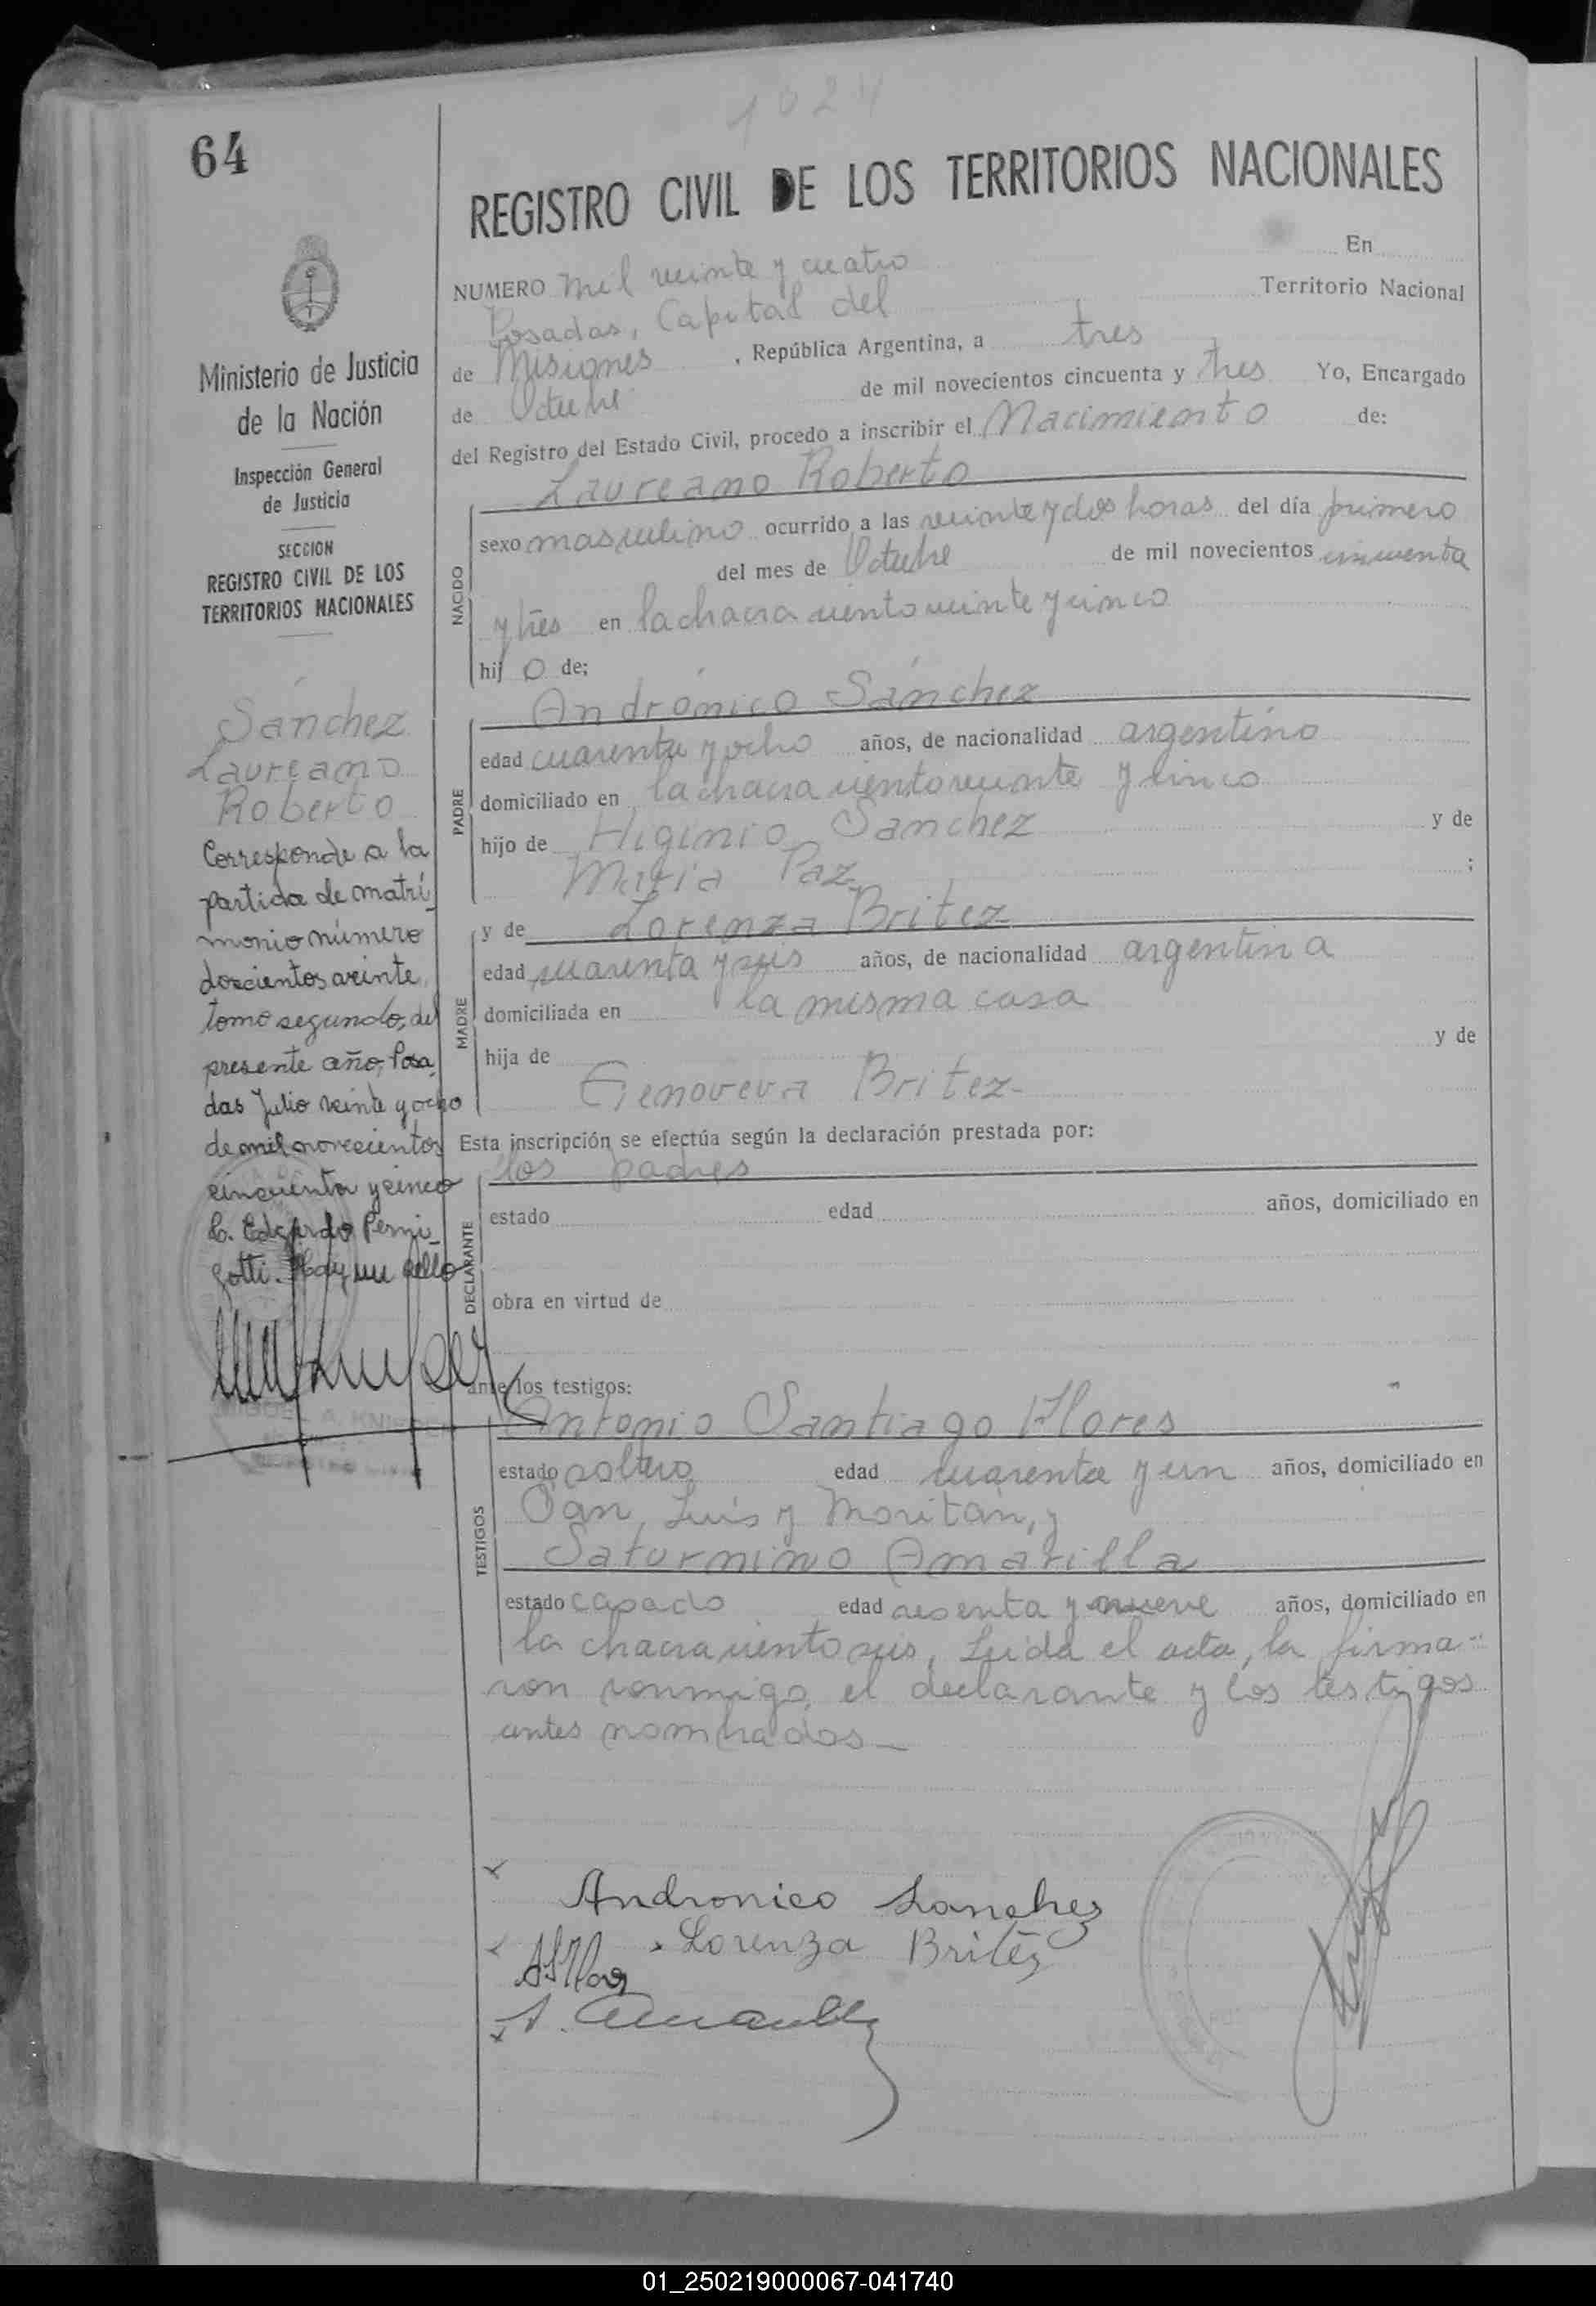 64
1024
REGISTRO CIVIL DE LOS TERRITORIOS NACIONALES
NUMERO mil veinte y cuatro En
Posadas, Capital del Territorio Nacional
de Misiones, República Argentina, a tres
de Octubre de mil novecientos cincuenta y tres Yo, Encargado
del Registro del Estado Civil, procedo a inscribir el Nacimiento de:
Laureano Roberto
NACIDO
sexo masculino ocurrido a las veinte y dos horas del día primero
del mes de Octubre de mil novecientos cincuenta
y tres en la chacra ciento veinte y cinco
hijo de;
Andrónico Sánchez
PADRE
edad cuarenta y ocho años, de nacionalidad argentino
domiciliado en la chacra ciento veinte y cinco
hijo de Higinio Sanchez y de
Maria Paz ;
y de Lorenza Britez
MADRE
edad cuarenta y seis años, de nacionalidad argentina
domiciliada en la misma casa
hija de y de
Genoveva Britez-
Esta inscripción se efectúa según la declaración prestada por:
los padres
DECLARANTE
estado edad años, domiciliado en
obra en virtud de
ante los testigos:
Antonio Santiago Flores
TESTIGOS
estado soltero edad cuarenta y un años, domiciliado en
San Luis y Moritán, y
Saturnino Amarilla
estado casado edad sesenta y nueve años, domiciliado en
la chacra ciento seis, Leida el acta, la firma-
ron conmigo, el declarante y los testigos
antes nombrados_
Andronico Sanchez
Lorenza Britez
ASFlores
S. Amarilla
Ministerio de Justicia
de la Nación
Inspección General
de Justicia
SECCION
REGISTRO CIVIL DE LOS
TERRITORIOS NACIONALES
Sánchez
Laureano
Roberto
Corresponde a la
partida de matri-
monio número
doscientos veinte,
tomo segundo, del
presente año, Posa-
das Julio veinte y ocho
de mil novecientos
cincuenta y cinco
C. Edgardo Perni-
gotti. Hay un sello
01_250219000067-041740